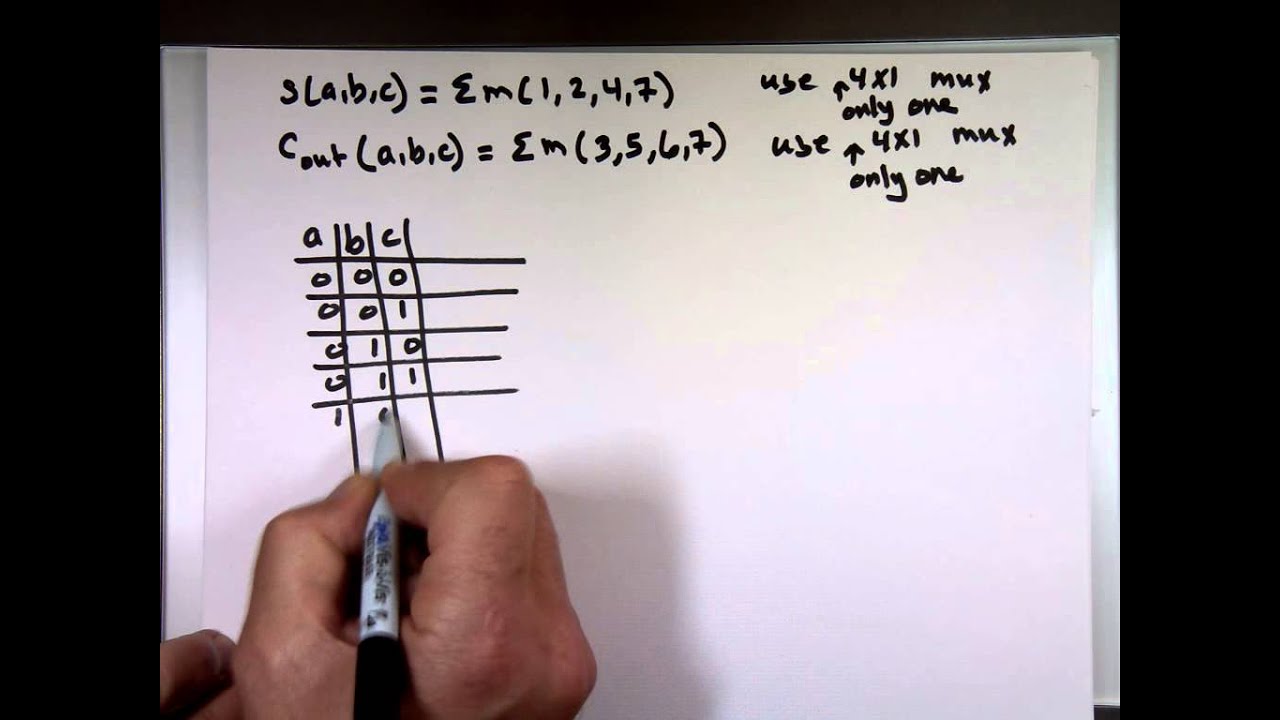 s(a,b,c) = Σm(1,2,4,7) use ↑ 4x1 mux
only one
Cout(a,b,c) = Σm(3,5,6,7) use ↑ 4x1 mux
only one
a b c
0 0 0
0 0 1
0 1 0
0 1 1
1